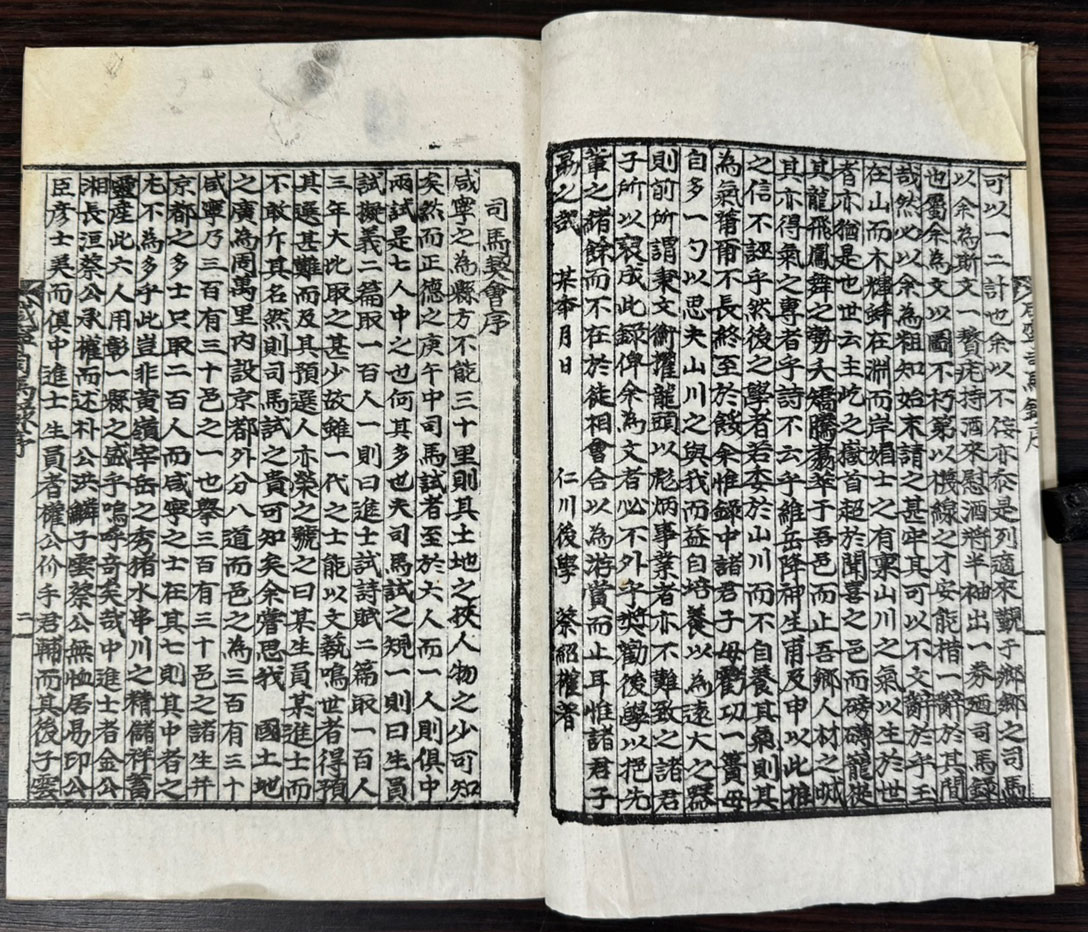 可以一二計也余以不侫亦忝是列適來觀于鄉鄉之司馬
以余為斯文一贅疣持酒來慰酒將半袖出一券廼司馬錄
也屬余為文以圖不朽第以機線之才安能楷一辭於其間
哉然必以余為粗知始末請之甚牢其可以不文辭於乎玉
在山而木輝蚌在淵而岸娟士之有禀山川之氣以生於世
者亦猶是也世云主屹之嶽首起於聞喜之邑而磅礴龍從
其龍飛鳳舞之勢夭矯騰翥萃于吾邑而止吾鄉人材之
其亦得氣之專者乎詩不云乎維岳降神生甫及申以此推
之信不誣乎然後之學者若委於山川而不自養其氣則其
為氣薾薾不長終至於餒余惟錄中諸君子毋虧功一簣毋
自多一勺以思夫山川之與我而益自培養以為遠大之器
則前所謂秉文衡擢龍頭以彪炳事業者亦不難致之諸君
子所以裒成此錄俾余為文者必不外乎奬勸後學以挹先
輩之緖餘而不在於徒相會合以為游賞而止耳惟諸君子
勗之哉 某年月日 仁川後學 蔡紹權著
咸寧司馬錄序
司馬契會序
咸寧之為縣方不能三十里則其土地之挾人物之少可知
矣然而正德之庚午中司馬試者至於六人而一人則俱中
兩試是七人中之也何其多也夫司馬試之規一則曰生員
試擬義二篇取一百人一則曰進士試詩賦二篇取一百人
三年大比取之甚少故雖一代之士能以文藝鳴世者得預
其選甚難而及其預選人亦榮之號之曰某生員某進士而
不敢斥其名然則司馬試之貴可知矣余嘗思我 國土地
之廣為周萬里內設京都外分八道而邑之為三百有三十
咸寧乃三百有三十邑之一也擧三百有三十邑之諸生并
京都之多士只取二百人而咸寧之士在其七則其中者之
尤不為多乎此豈非黃嶺宰岳之秀猪水串川之精儲祥蓄
靈產此六人用彰一縣之盛乎嗚呼奇矣哉中進士者金公
湘長洹蔡公承權而述朴公洪鱗子雲蔡公無恤居易印公
臣彥士美而俱中進士生員者權公价手君輔而其後子雲
咸寧司馬錄序
二